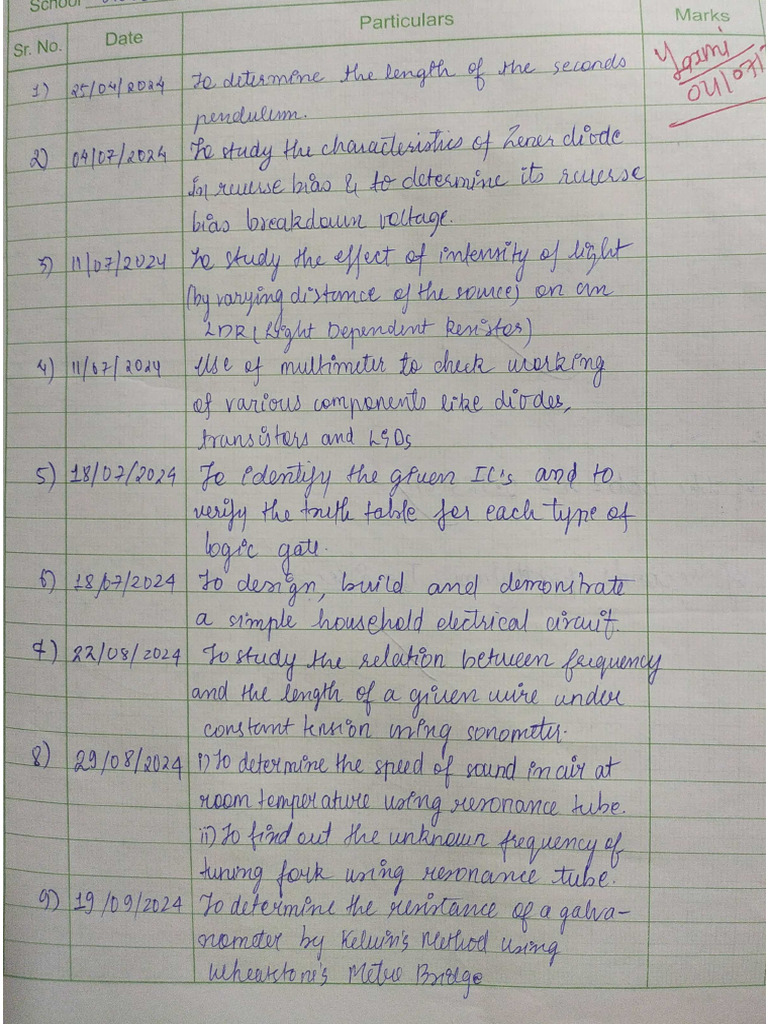 School
Sr. No. Date Particulars Marks
1) 25/04/2024 To determine the length of the seconds
pendulum.
04/07/
2) 04/07/2024 To study the characteristics of Zener diode
in reverse bias & to determine its reverse
bias breakdown voltage.
3) 11/07/2024 To study the effect of intensity of light
(by varying distance of the source) on an
LDR (Light Dependent Resistor)
4) 11/07/2024 Use of multimeter to check working
of various components like diodes,
transistors and LEDs
5) 18/07/2024 To identify the given IC's and to
verify the truth table for each type of
logic gate.
6) 18/07/2024 To design, build and demonstrate
a simple household electrical circuit.
7) 22/08/2024 To study the relation between frequency
and the length of a given wire under
constant tension using sonometer.
8) 29/08/2024 i) To determine the speed of sound in air at
room temperature using resonance tube.
ii) To find out the unknown frequency of
tuning fork using resonance tube.
9) 19/09/2024 To determine the resistance of a galva-
nometer by Kelvin's Method using
Wheatstone's Metre Bridge